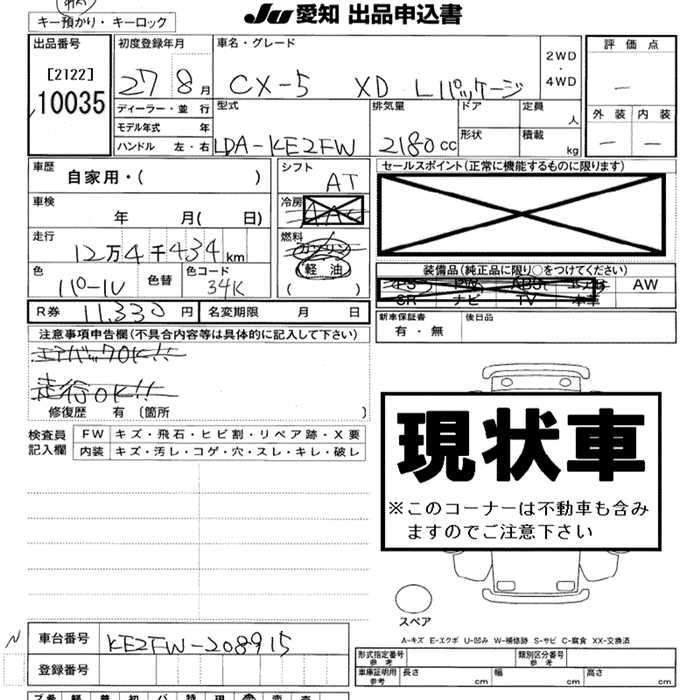 JU 愛知 出品申込書
キー預かり・キーロック
出品番号
[2122]
10035
初度登録年月
27 8月
ディーラー・並 行
モデル年式 年
ハンドル 左・右
車名・グレード
CX-5 XD Lパッケージ
2WD
・
4WD
型式
LDA-KE2FW
排気量
2180 cc
ドア
形状
定員
人
積載
kg
評価点
—
外装 内装
— —
車歴
自家用・( )
車検
年 月( 日)
走行
12万4千434km
色
パール
色替
色コード
34K
シフト
AT
冷房
AAC
燃料
ガソリン
軽油
( )
セールスポイント(正常に機能するものに限ります)
装備品(純正品に限り○をつけてください)
PS PW ABS エアB AW
SR ナビ TV 本革
R券 11,330 円
名変期限 月 日
新車保証書
有・無
後日品
注意事項申告欄(不具合内容等は具体的に記入して下さい)
エアバックOK!!
走行OK!!
修復歴 有 〔箇所 〕
検査員
記入欄
FW キズ・飛石・ヒビ割・リペア跡・X要
内装 キズ・汚レ・コゲ・穴・スレ・キレ・破レ
現状車
※このコーナーは不動車も含み
ますのでご注意下さい
スペア
A-キズ E-エクボ U-凹み W-補修跡 S-サビ C-腐食 XX-交換済
N
車台番号 KE2FW-208915
登録番号
形式指定番号
参考
類別区分番号
参考
車庫証明用
参考
長さ cm 幅 cm 高さ cm